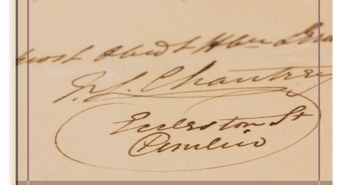 most Obedt Hble
F. L. Chantrey
Eccleston St
Pimlico